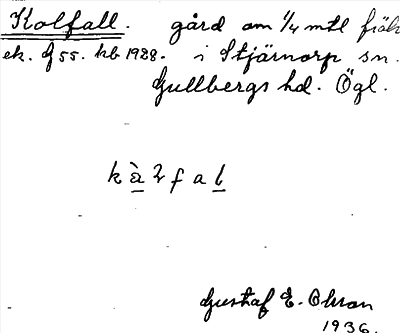 Kolfall. gård om 1/4 mtl frälse
ek. J 55. hb 1928. i Stjärnorp sn.
Gullbergs hd. Ögl.
kàlfal
Gustaf E. Olsson
1936.